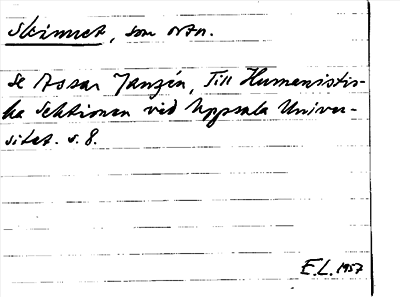 Skinnet, som ortn.
Se Assar Janzén, Till Humanistis-
ka Sektionen vid Uppsala Univer-
sitet. s. 8.
E.L. 1957